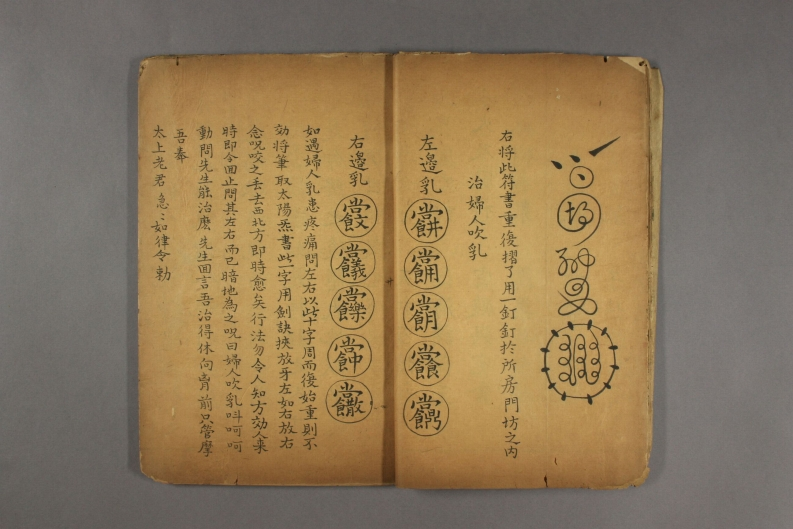 右將此符書重復摺了用一釘釘於所房門坊之內
治婦人吹乳
左邊乳
右邊乳
如遇婦人乳患疼痛問左右以此十字周而復始重則不
効將筆取太陽炁書此一字用劍訣挾放牙左如右放右
念咒咬之丢去西北方即時愈矣行法勿令人知方効人來
時即令回止問其左右而已暗地為之呪曰婦人吹乳叫呵呵
動問先生能治麽先生回言吾治得休向胷前只管摩
吾奉
太上老君急〻如律令勅